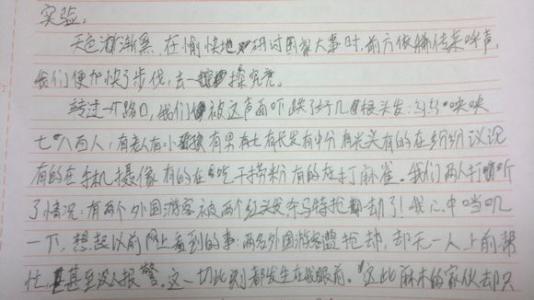 实验。
天色渐渐黑,在愉快地研讨国家大事时,前方依稀传来呼声,
我们便加快了步伐,去一探究竟。
转过一个路口,我们被这声面吓跌了好几根头发,乌乌咉咉
七八百人,有老人有小孩有男有女有长发有中分有光头有的在纷纷议论
有的在手机摄像有的在吃干捞粉有的在打麻雀。我们两人打听
了情况,有两个外国游客被两个红头发杀马特抢劫了!我心中咯叽
一下,想起以前网上看到的事,两名外国游客遭抢劫,却无一人上前帮
忙,甚至没人报警。这一切此刻都发生在我眼前。这些麻木的家伙却只